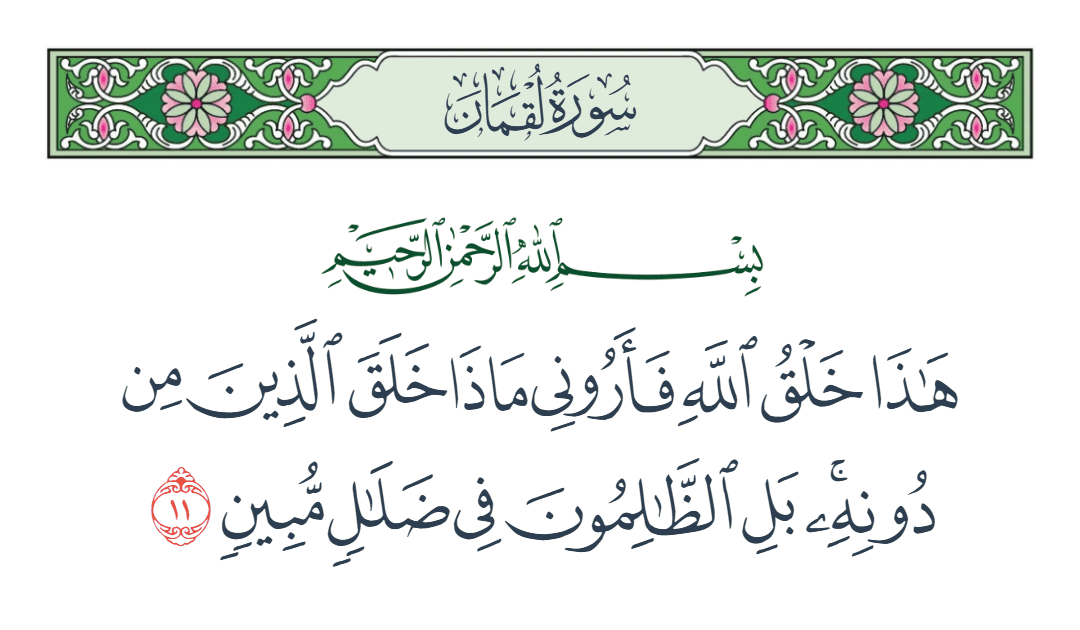 سُورَةُ لُقْمَانَ
بِسْمِ ٱللَّهِ ٱلرَّحْمَٰنِ ٱلرَّحِيمِ
هَٰذَا خَلْقُ ٱللَّهِ فَأَرُونِى مَاذَا خَلَقَ ٱلَّذِينَ مِن
دُونِهِۦۚ بَلِ ٱلظَّٰلِمُونَ فِى ضَلَٰلٍ مُّبِينٍ ١١